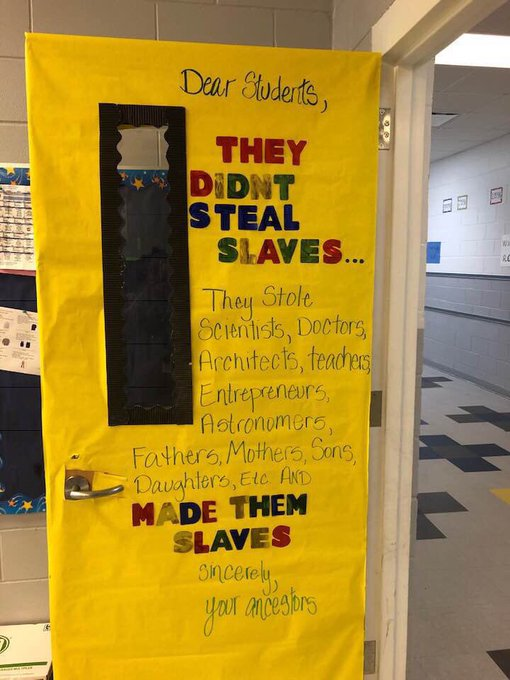 Dear Students,
THEY
DIDNT
STEAL
SLAVES...
They Stole
Scientists, Doctors,
Architects, teachers
Entrepreneurs,
Astronomers,
Fathers, Mothers, Sons,
Daughters, Etc AND
MADE THEM
SLAVES
Sincerely,
your ancestors